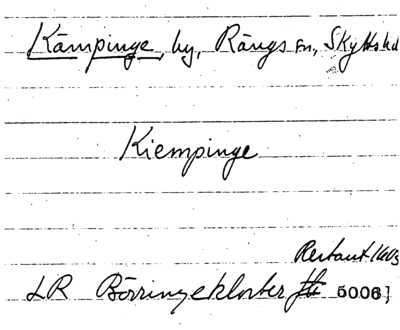 Kämpinge, by, Rängs sn, Skytts hd
Kiempinge
Restant 1603
LR Börringekloster 5006]